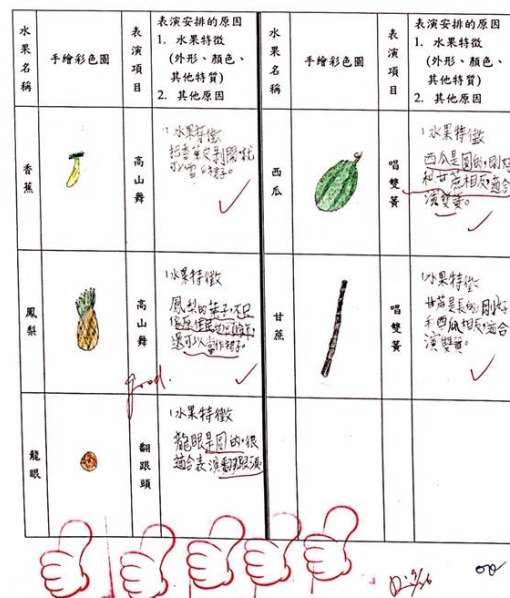 水果名稱
手繪彩色圖
表演項目
表演安排的原因
1. 水果特徵
(外形、顏色、
其他特質)
2. 其他原因
水果名稱
手繪彩色圖
表演項目
表演安排的原因
1. 水果特徵
(外形、顏色、
其他特質)
2. 其他原因
香蕉
高山舞
1水果特徵
把香蕉皮剝開就
可以當
裙子。
西瓜
唱雙簧
1水果特徵
西瓜是圓的,剛好
和甘蔗相反,適合
演雙簧。
鳳梨
高山舞
1水果特徵
鳳梨的葉子,不只
像原住民的頭飾,
還可以當作裙子。
good.
甘蔗
唱雙簧
1水果特徵
甘蔗是長的,剛好
和西瓜相反,適合
演雙簧。
龍眼
翻跟頭
1水果特徵
龍眼是圓的,很
適合表演翻跟頭。